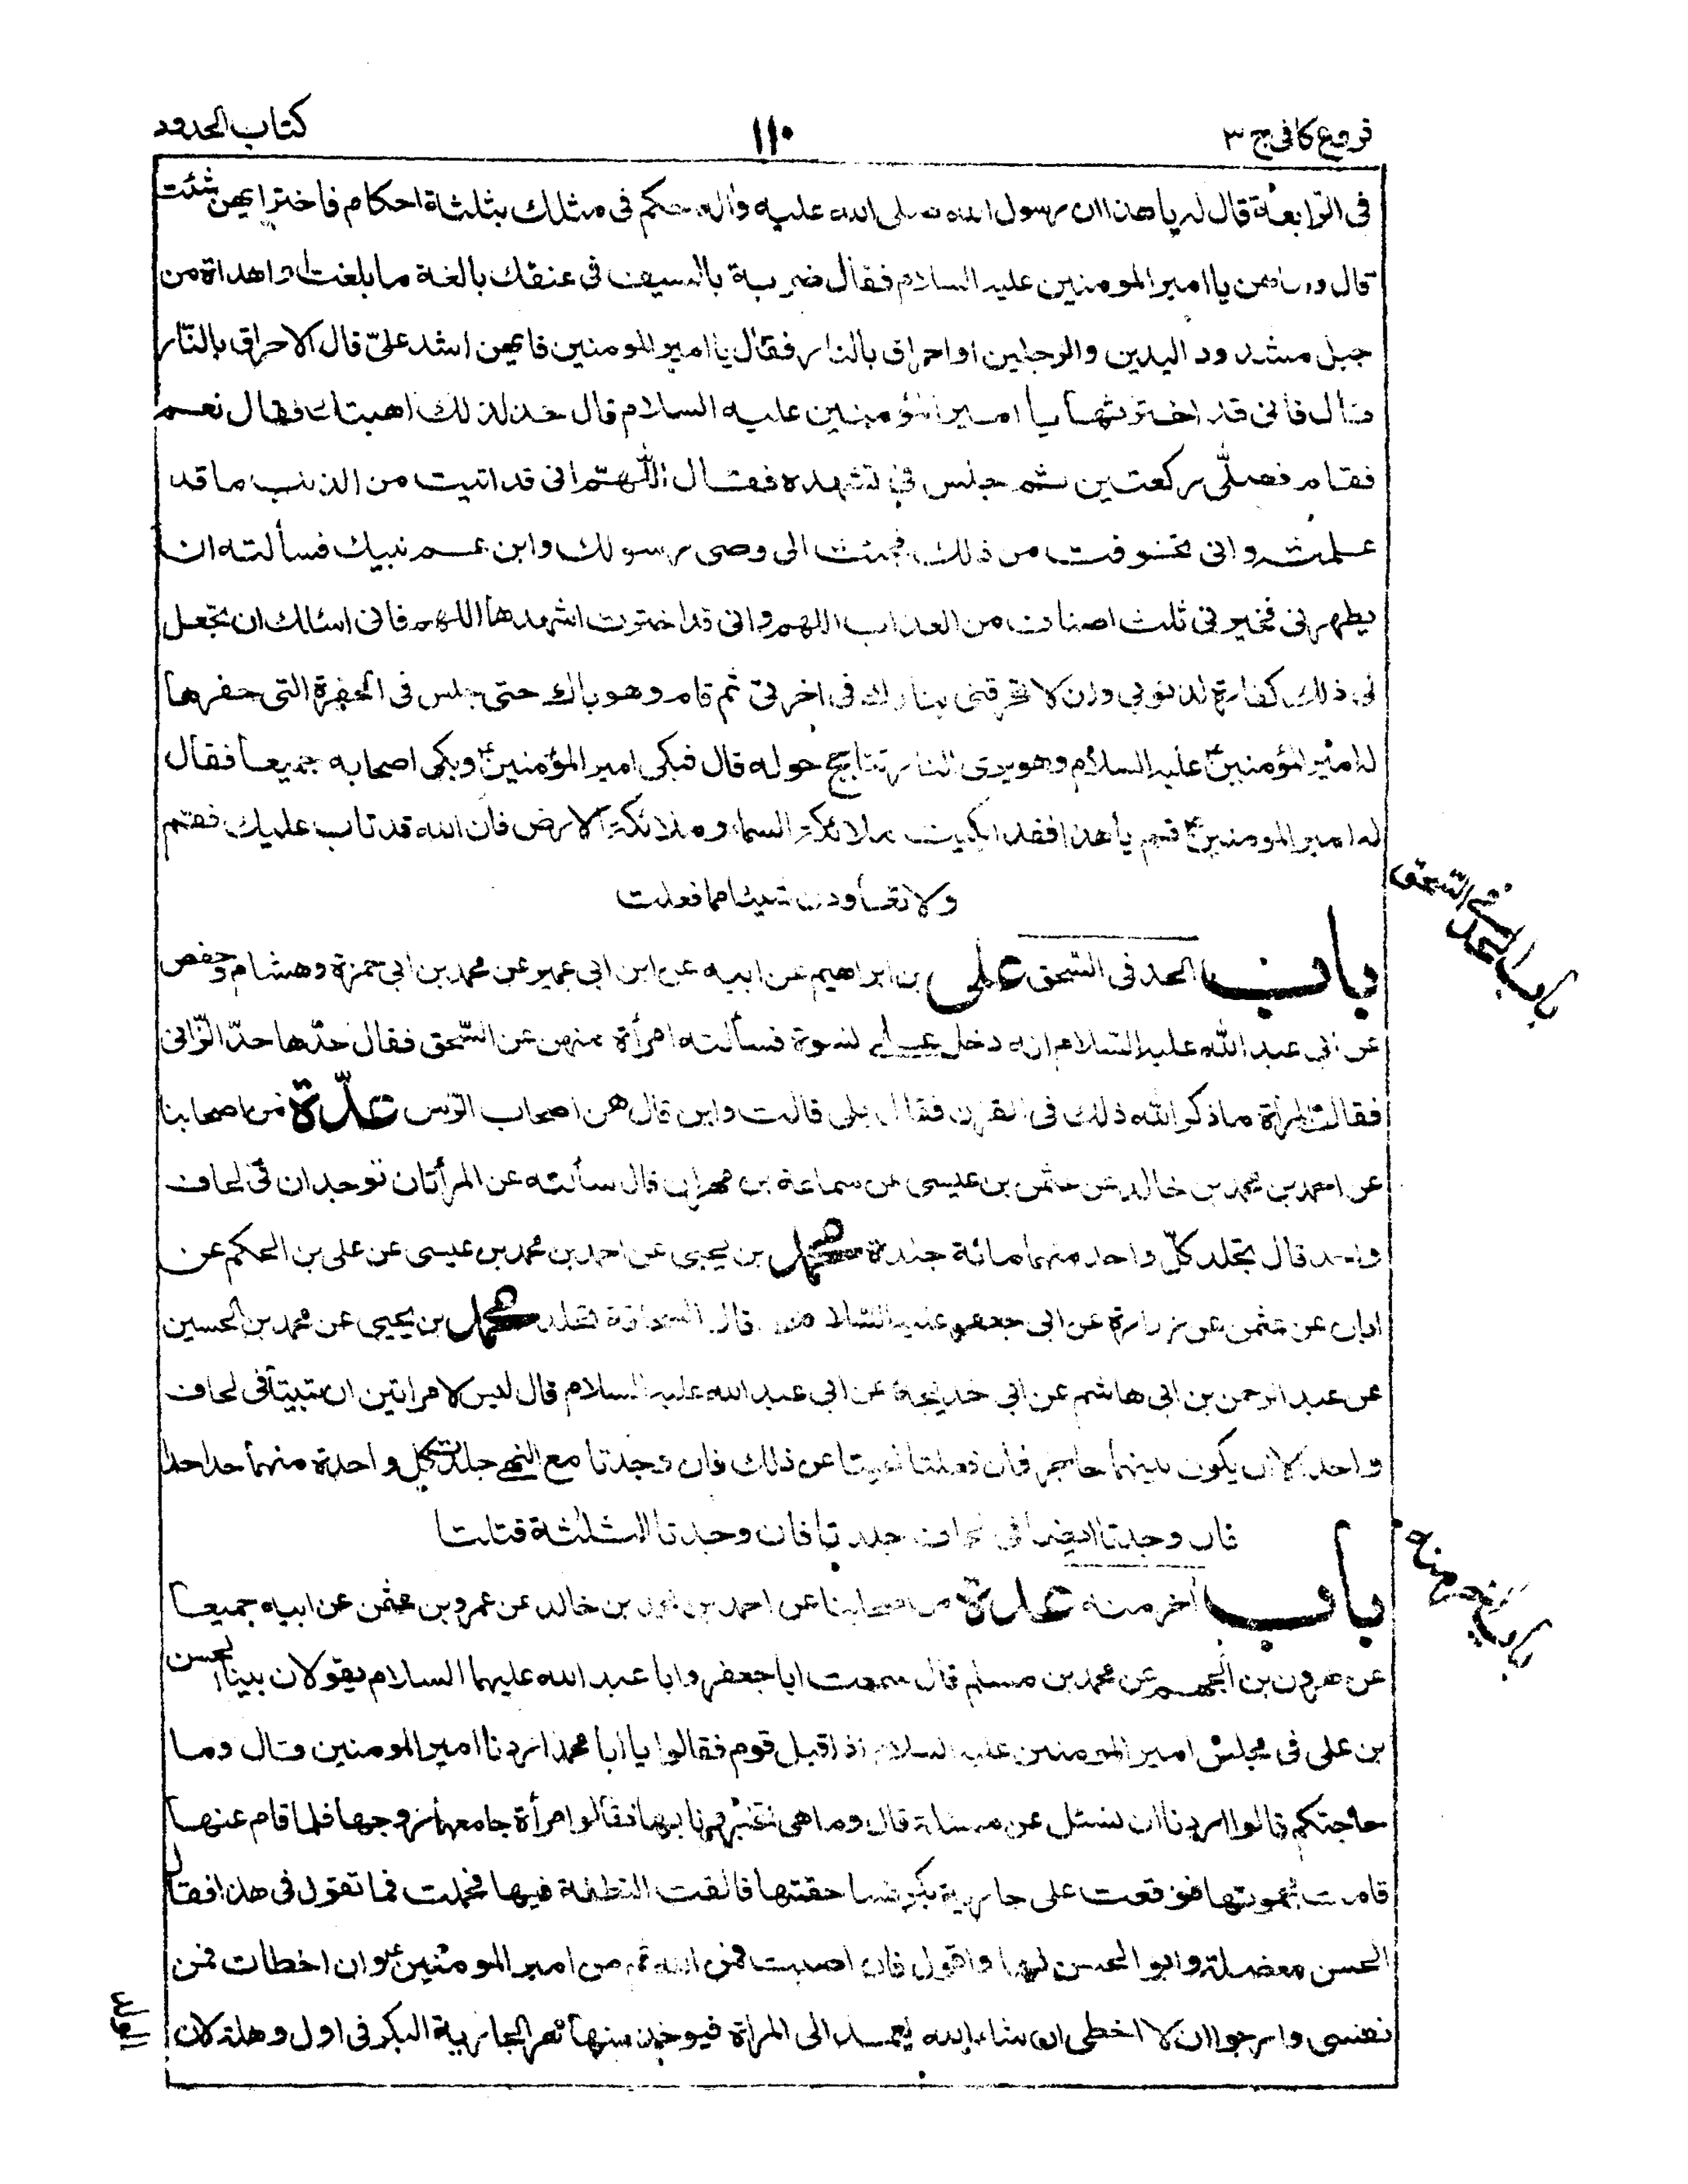 فروع كافى ج ٣
١١٠
كتاب الحدود
فى الرّابعة قال له يا هذا ان رسول الله صلى الله عليه وأله حكم فى مثلك بثلثة احكام فاختر ايهن شئت
قال وما هن يا امير المومنين عليه السلام فقال ضربة بالسيف فى عنقك بالغة ما بلغت او اهداة من
جبل مشدود اليدين والرجلين او احراق بالنار فقال يا امير المومنين فايهن اشد علىّ قال الاحراق بالنّار
قال فانى قد اخترتها يا امير المؤمنين عليه السلام قال خذ لذلك اهبتك فقال نعم
فقام فصلّى ركعتين ثم جلس فى تشهده فقال اللّهمّ انى قد اتيت من الذنب ما قد
علمته وانى تخوفت من ذلك فجئت الى وصى رسولك وابن عم نبيك فسألته ان
يطهرنى فخيرنى ثلث اصناف من العذاب اللهم وانى قد اخترت اشدها اللهم فانى اسئالك ان تجعل
لى ذلك كفارة لذنوبي وان لا تحرقنى بنارك فى اخرتى ثم قام وهو باك حتى جلس فى الحفرة التى حفرها
له امير المؤمنين عليه السلام وهو يرى النار تتاجج حوله قال فبكى امير المؤمنينؑ وبكى اصحابه جميعا فقال
له امير المومنينؑ قم يا هذا فقد ابكيت ملائكة السماء وملائكة الارض فان الله قد تاب عليك فقم
ولا تعاودن شيئا مما فعلت
باب الحد فى السّحق على بن ابراهيم عن ابيه عن ابن ابى عمير عن محمد بن ابى حمزة وهشام وحفص
باب الحد فى السّحق
عن ابى عبد الله عليه السّلام انه دخل عليه نسوة فسألته امرأة منهن عن السّحق فقال حدّها حدّ الزّانى
فقالت المرأة ما ذكر الله ذلك فى القرآن فقال بلى قالت واين قال هن اصحاب الرّس عدّة من اصحابنا
عن احمد بن محمد بن خالد عن عثمن بن عيسى عن سماعة بن مهران قال سألته عن المرأتان توجدان فى لحاف
واحد قال تجلد كلّ واحد منهما مائة جلدة محمد بن يحيى عن احمد بن محمد بن عيسى عن على بن الحكم عن
ابان عن عثمن عن زرارة عن ابى جعفر عليه السّلام قال السحاقة تجلد محمد بن يحيى عن محمد بن الحسين
عن عبد الرحمن بن ابى هاشم عن ابى خديجة عن ابي عبد الله عليه السلام قال ليس لامراتين ان تبيتا فى لحاف
واحد الا ان يكون بينهما حاجز فان فعلتا نهيتا عن ذلك فان وجدتا مع النهى جلدت كل واحدة منهما حدا حدا
فان وجدتا ايضا فى لحاف جلدتا فان وجدتا الثلثة قتلتا
باب أخر منه عدة من اصحابنا عن احمد بن محمد بن خالد عن عمرو بن عثمن عن ابيه جميعا
باب أخر منه
عن هرون بن الجهم عن محمد بن مسلم قال سمعت ابا جعفر وابا عبد الله عليهما السلام يقولان بينا الحسن
بن على فى مجلس امير المومنين عليه السلام اذ اقبل قوم فقالوا يا ابا محمد اردنا امير المومنين قال وما
حاجتكم قالوا اردنا ان نسئل عن مسئلة قال وما هى تخبرونا بها فقالوا امرأة جامعها زوجها فلما قام عنها
قامت بحموتها فوقعت على جارية بكر فساحقتها فالقت النطفة فيها فحملت فما تقول فى هذا فقال
الحسن معضلة وابو الحسن لها واقول فان اصبت فمن الله ثم من امير المومنينؑ وان اخطات فمن
نفسى وارجو ان لا اخطى ان شاء الله يعمد الى المراة فيوخذ منها مهر الجارية البكر فى اول وهلة لان
الولد